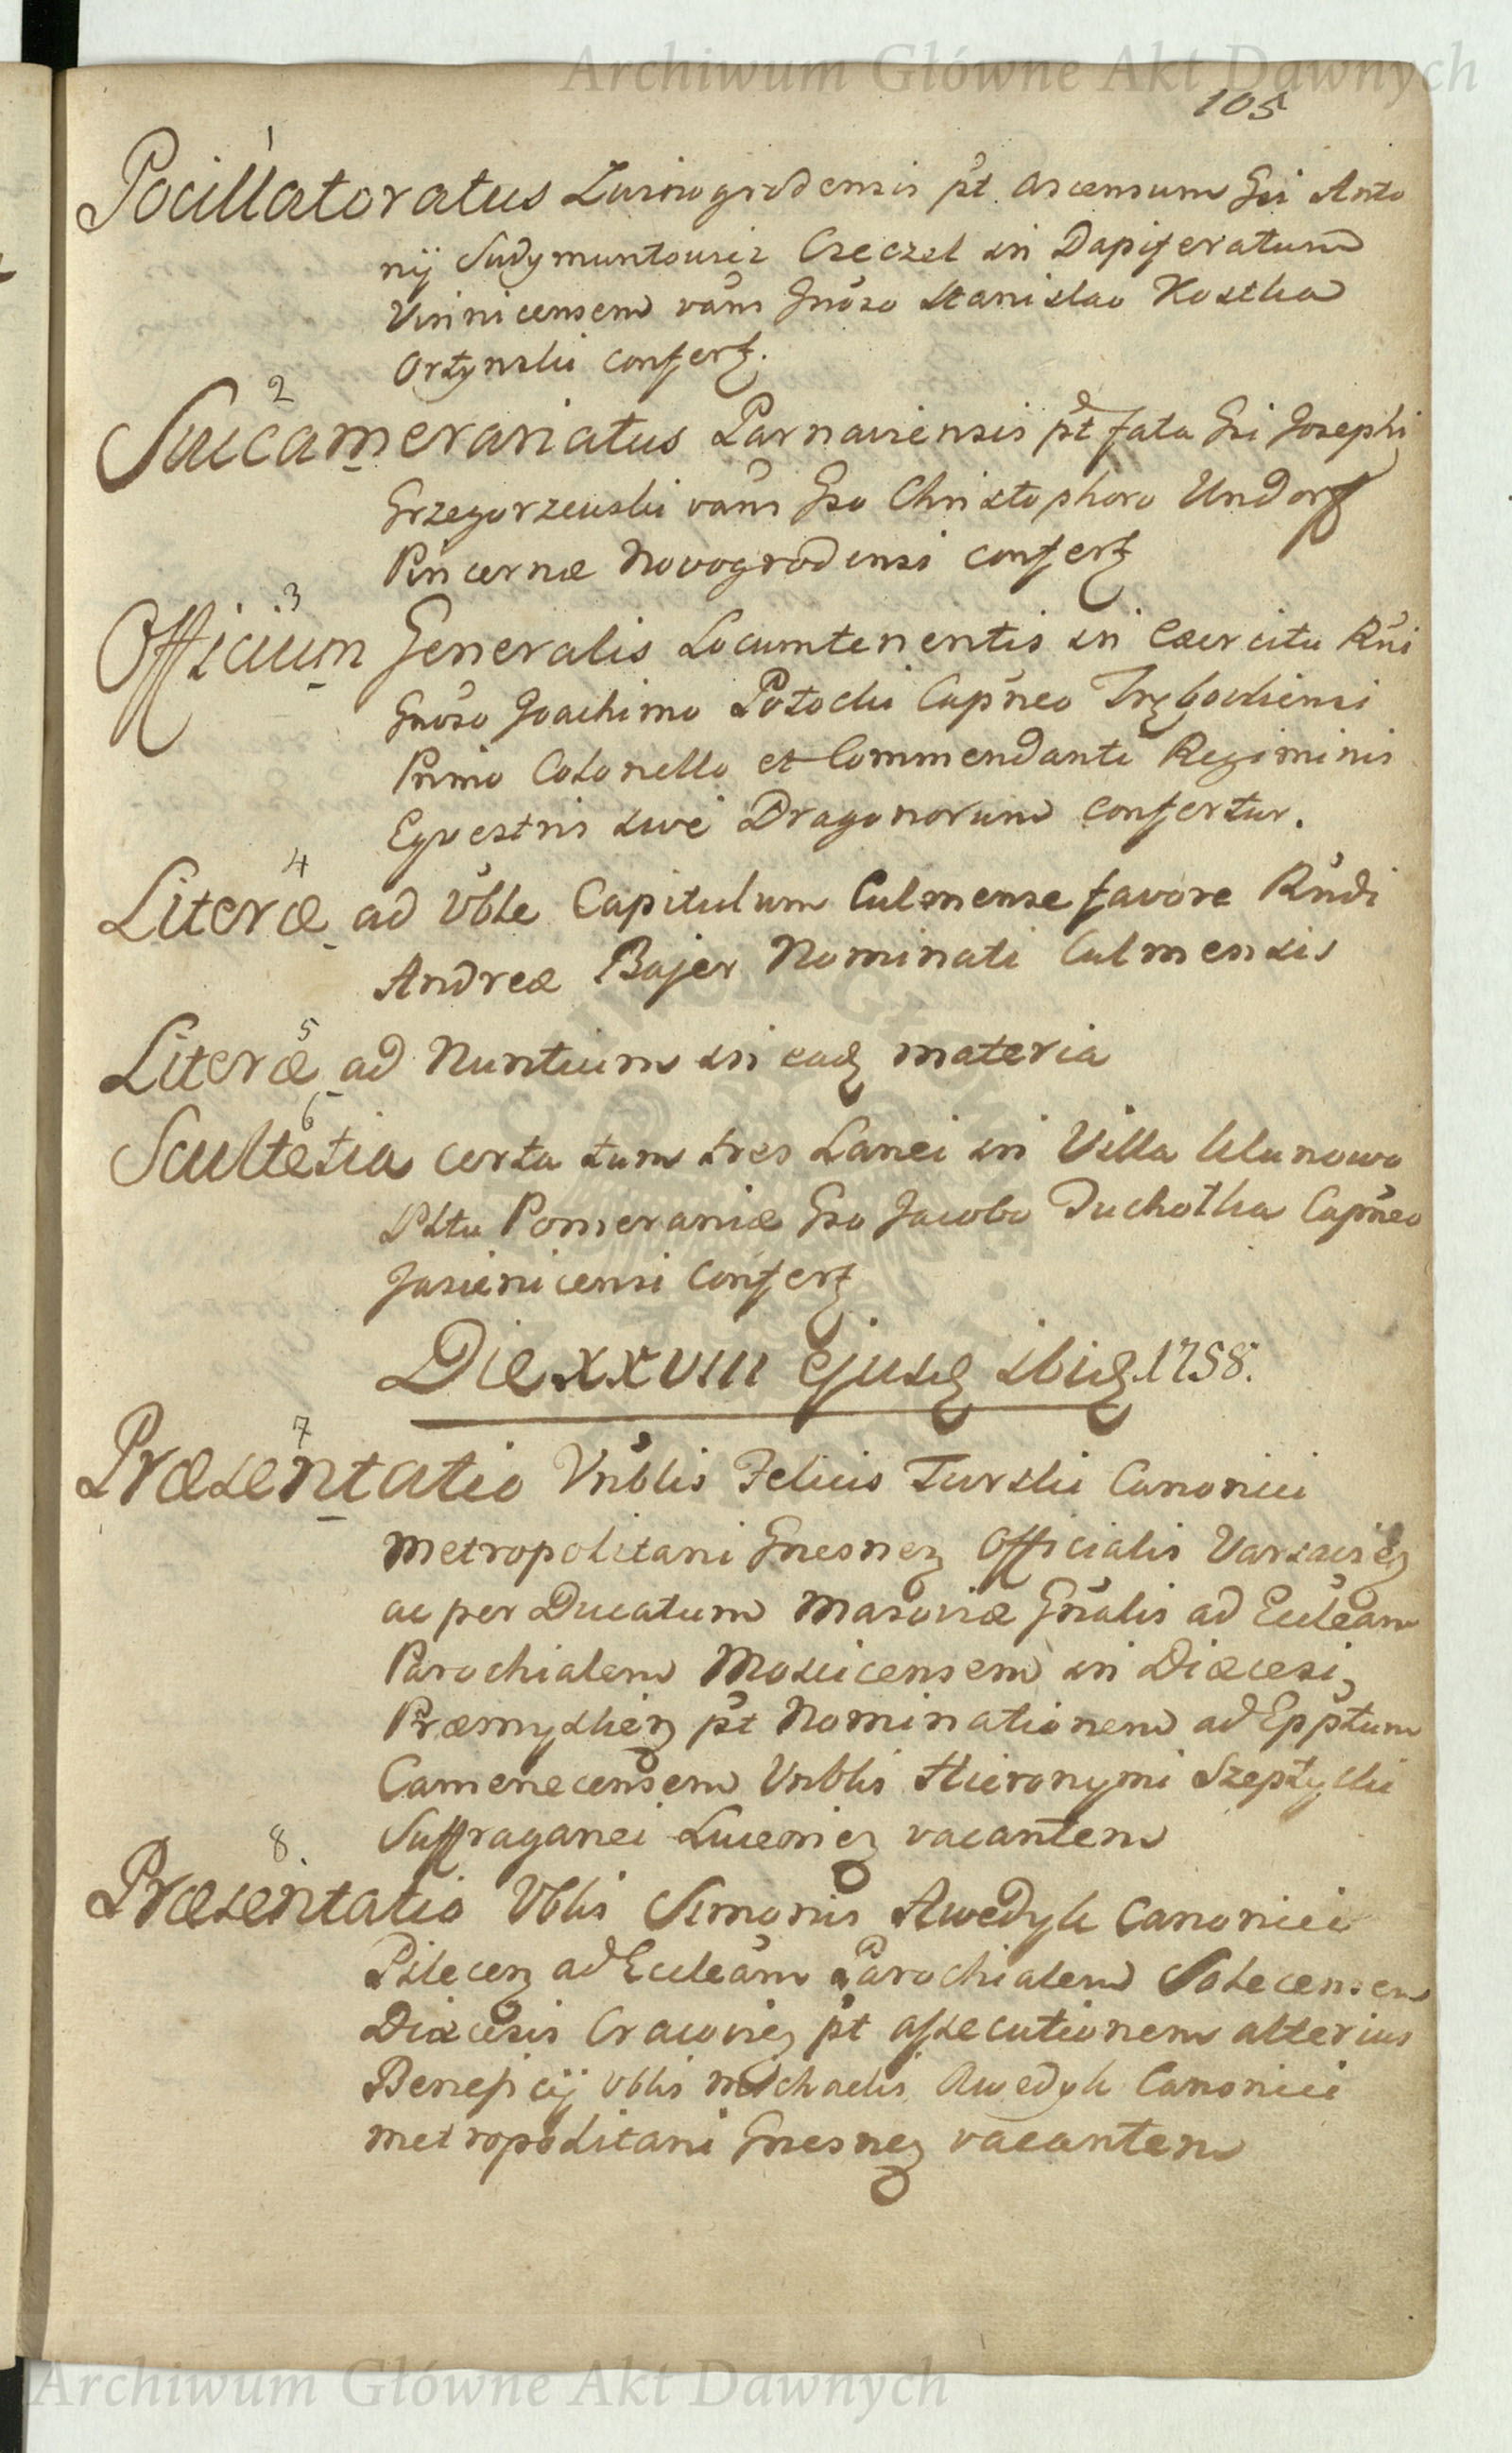 Archiwum Główne Akt Dawnych
105
1
Pocillatoratus Zwinogrodensis pt ascensum Gsi Anto
nij Sudymuntowicz Czeczel in Dapiferatum
Vinnicensem vans Gnoso Stanislao Kostka
Ortynski confert.
2
Succamerariatus Parnaviensis pt fata Gsi Josephi
Grzegorzewski vans Gso Christophoro Undorf
Pincernæ Novogrodensi confert
3
Officium Generalis Locumtenentis in Exercitu Rni
Gnoso Joachimo Potocki Capneo Trębowliensi
Primo Colonello et Commendanti Regiminis
Eqvestris sive Dragonorum confertur.
4
Literæ ad Vble Capitulum Culmense favore Rndi
Andreæ Bajer Nominati Culmensis
5
Literæ ad Nuntium in eadq materia
6
Scultetia certa tum tres Lanei in Villa
Pltu Pomeraniæ Gso Jacobo Tuchołka Capneo
Jasienicensi confert
Die XXVIII ejusdq ibidq 1758.
7
Præsentatio Vnblis Felicis Turski Canonici
Metropolitani Gnesnen Officialis Varsavien
ac per Ducatum Masoviæ Gnalis ad Eccleam
Parochialem Mosticensem in Diæcesi
Præmyslien pt Nominationem ad Epptum
Camenecensem Vnblis Hieronymi Szeptycki
Suffraganei Luceorien vacantem
8.
Præsentatio Vblis Simonis Awedyk Canonici
Pilecen ad Eccleam Parochialem Solecensem
Diæcesis Cracovien pt assecutionem alterius
Beneficij Vblis Michaelis Awedyk Canonici
Metropolitani Gnesnen vacantem
Archiwum Główne Akt Dawnych